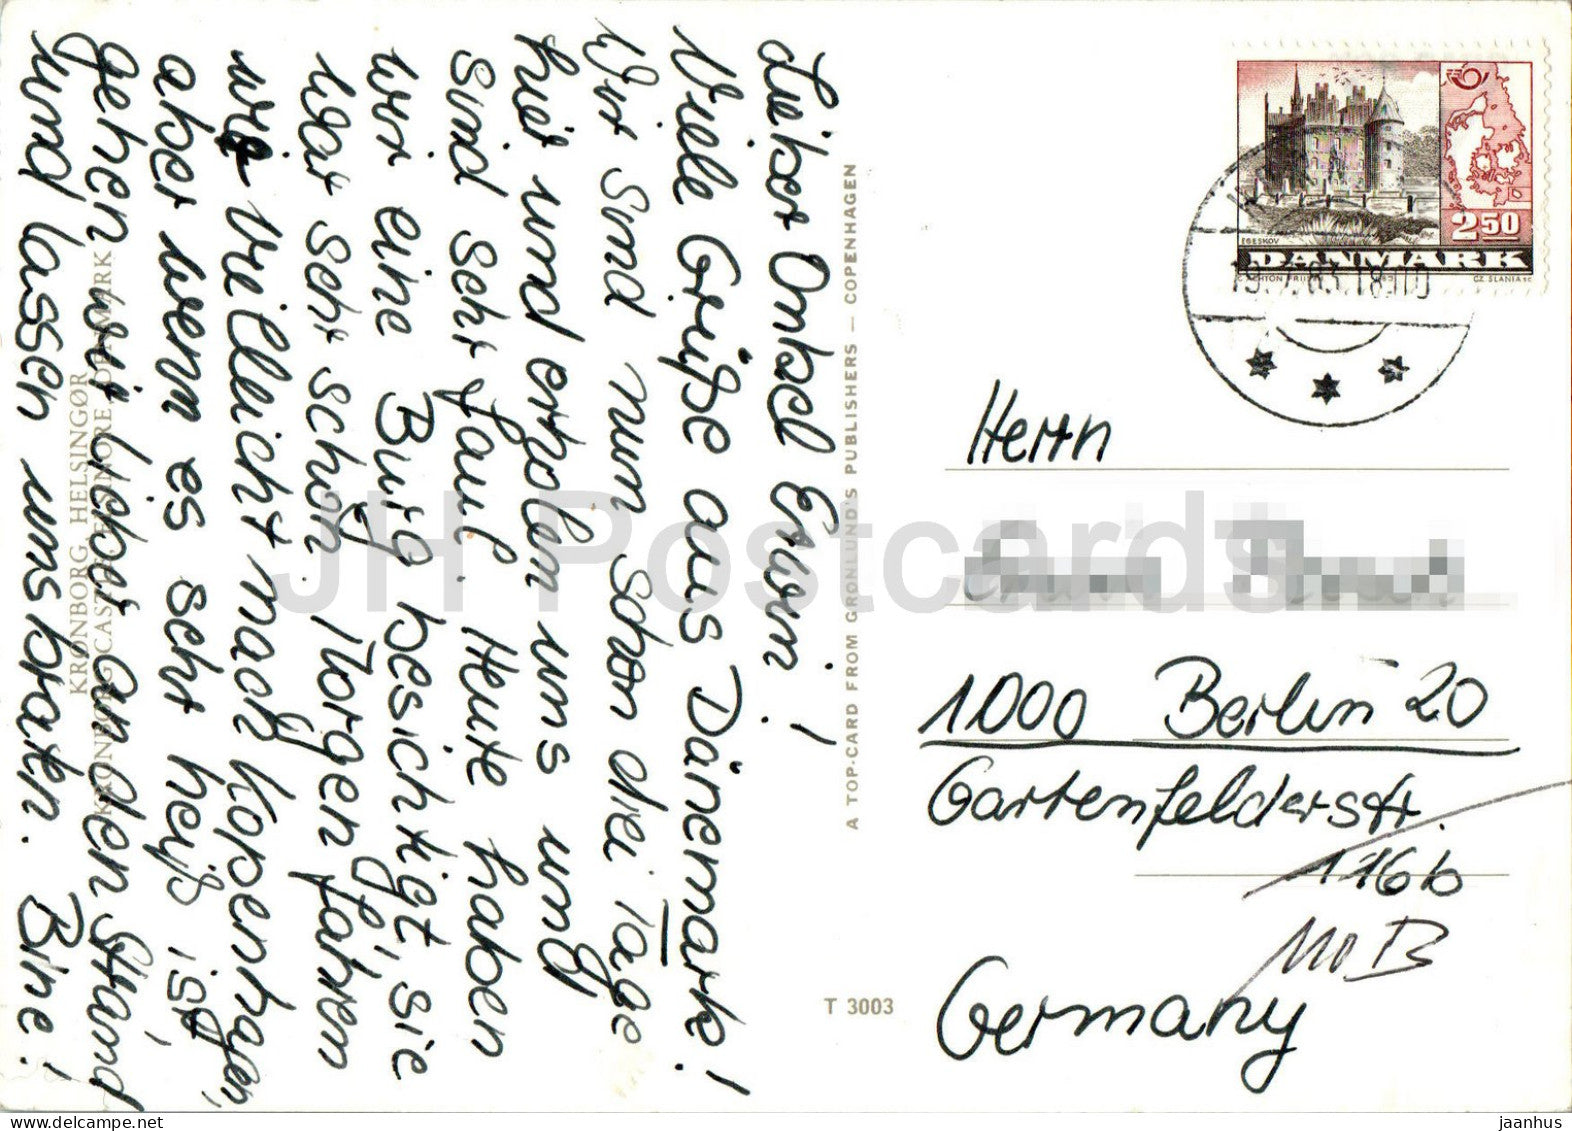 Lieber Onkel Erwin!
Viele Grüße aus Dänemark!
Wir sind nun schon drei Tage
hier und erholen uns und
sind sehr faul. Heute haben
wir eine Burg besichtigt, sie
war sehr schön. Morgen fahren
wir vielleicht nach Kopenhagen,
aber wenn es sehr heiß ist,
gehen wir lieber an den Strand
und lassen uns braten. Bine!
KRONBORG, HELSINGØR
KRONBORG CASTLE, ELSINORE, DENMARK
A TOP-CARD FROM GRØNLUND'S PUBLISHERS — COPENHAGEN
T 3003
EGESKOV
2 50
DANMARK
CZ SLANIA sc
19.7.83.18
Herrn
1000 Berlin 20
Gartenfelderstr.
116b
110 B
Germany
JH Postcards
www.delcampe.net
jaanhus